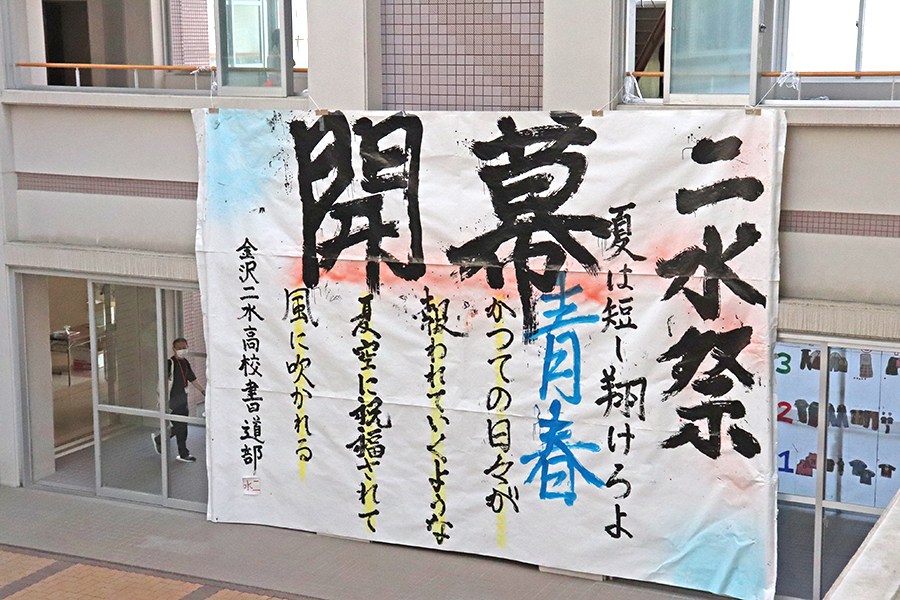 二水祭
開幕
夏は短し翔けろよ
青春
かつての日々が
報われていくような
夏空に祝福されて
風に吹かれる
金沢二水高校書道部
二水
3
2
1